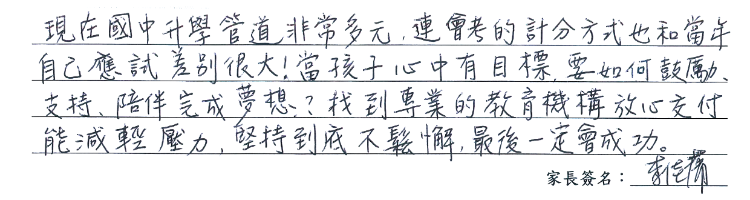 現在國中升學管道非常多元,連會考的計分方式也和當年
自己應試差別很大!當孩子心中有目標,要如何鼓勵、
支持、陪伴完成夢想?找到專業的教育機構放心交付
能減輕壓力,堅持到底不鬆懈,最後一定會成功。
家長簽名:李佳